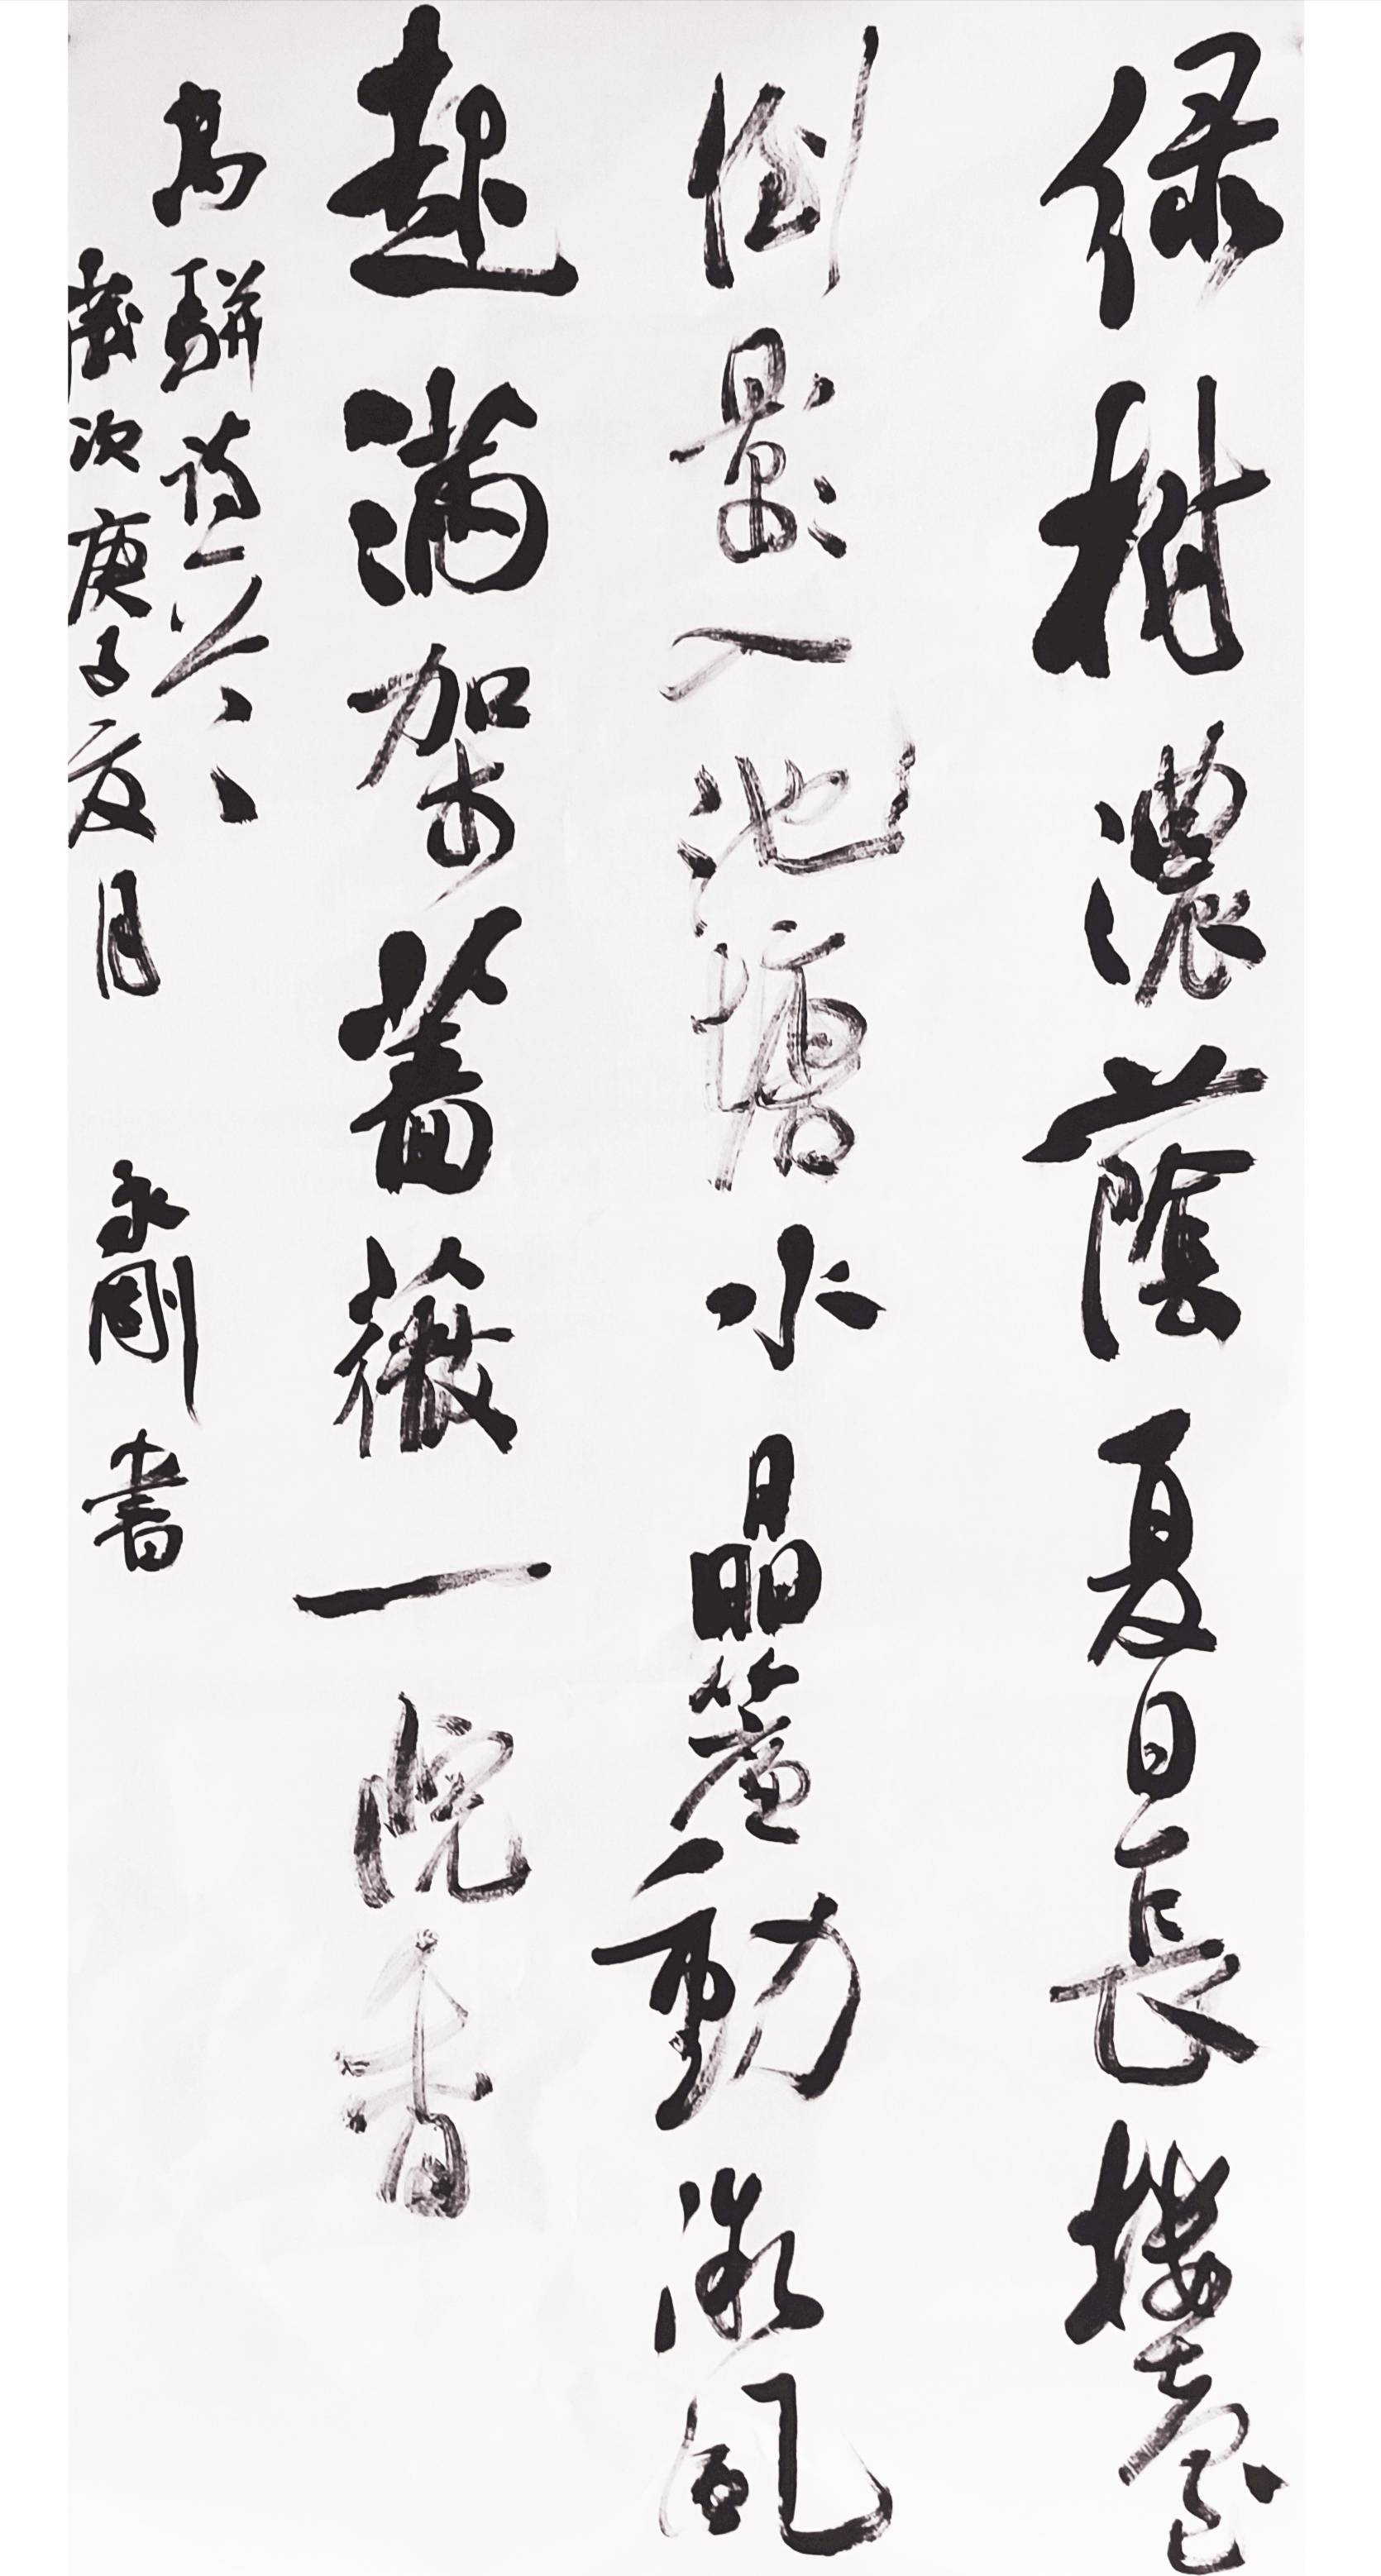 绿树濃蔭夏日長樓臺
倒影入池塘水晶簾動微風
起滿架薔薇一院香
高駢詩一首
歲次庚子夏月 永剛書